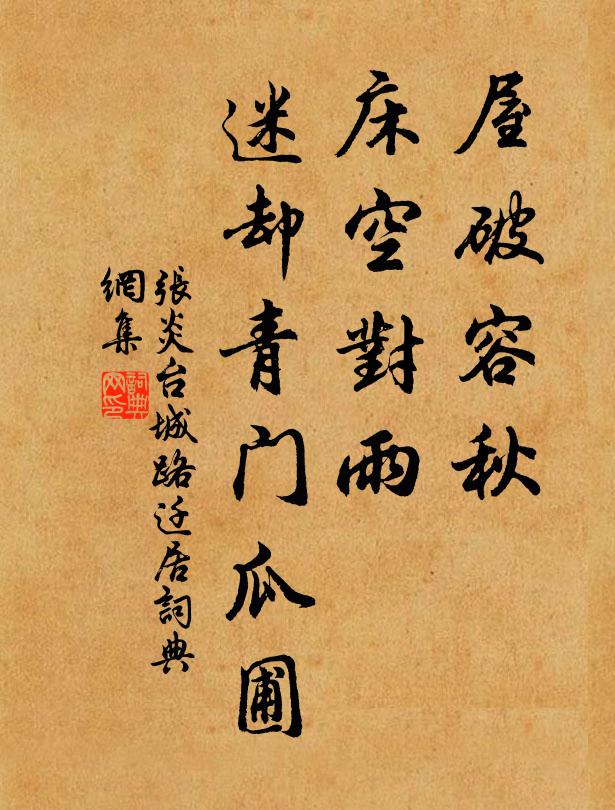 屋破容秋
床空對雨
迷却青门瓜圃
張炎台城路迁居詞典
網集
詞典
网印